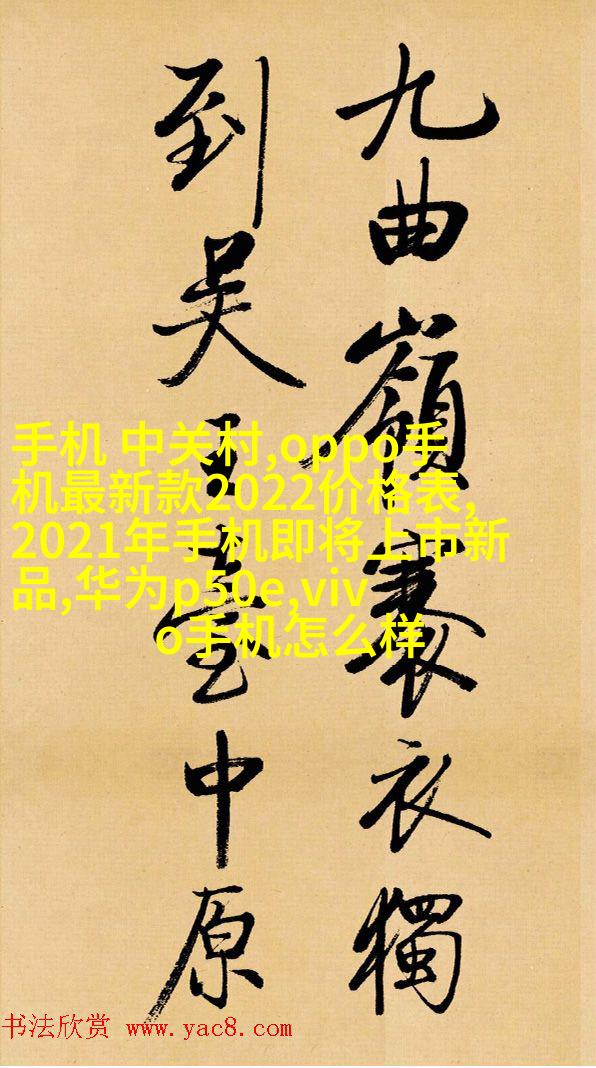 九曲嶺褰衣獨
到吴王臺中原
手机 中关村,oppo手
机最新款2022价格表,
2021年手机即将上市新
品,华为p50e,viv
o手机怎么样
书法欣赏 www.yac8.com